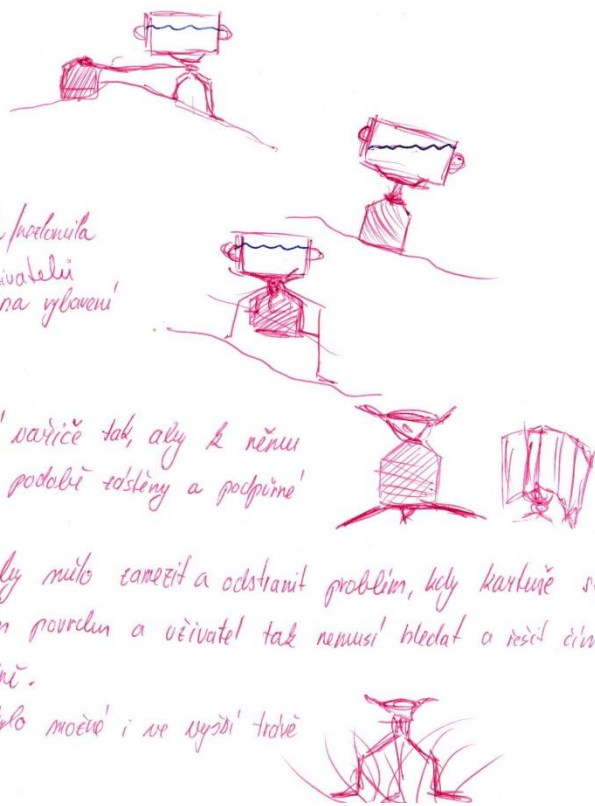 uživatelů
na vybavení
vařiče tak, aby k němu
podobě zástěny a podpůrné
by mělo zamezit a odstranit problém, kdy kartuše
povrchu a uživatel tak nemusí hledat a řešit čím
možné i ve vyšší trávě